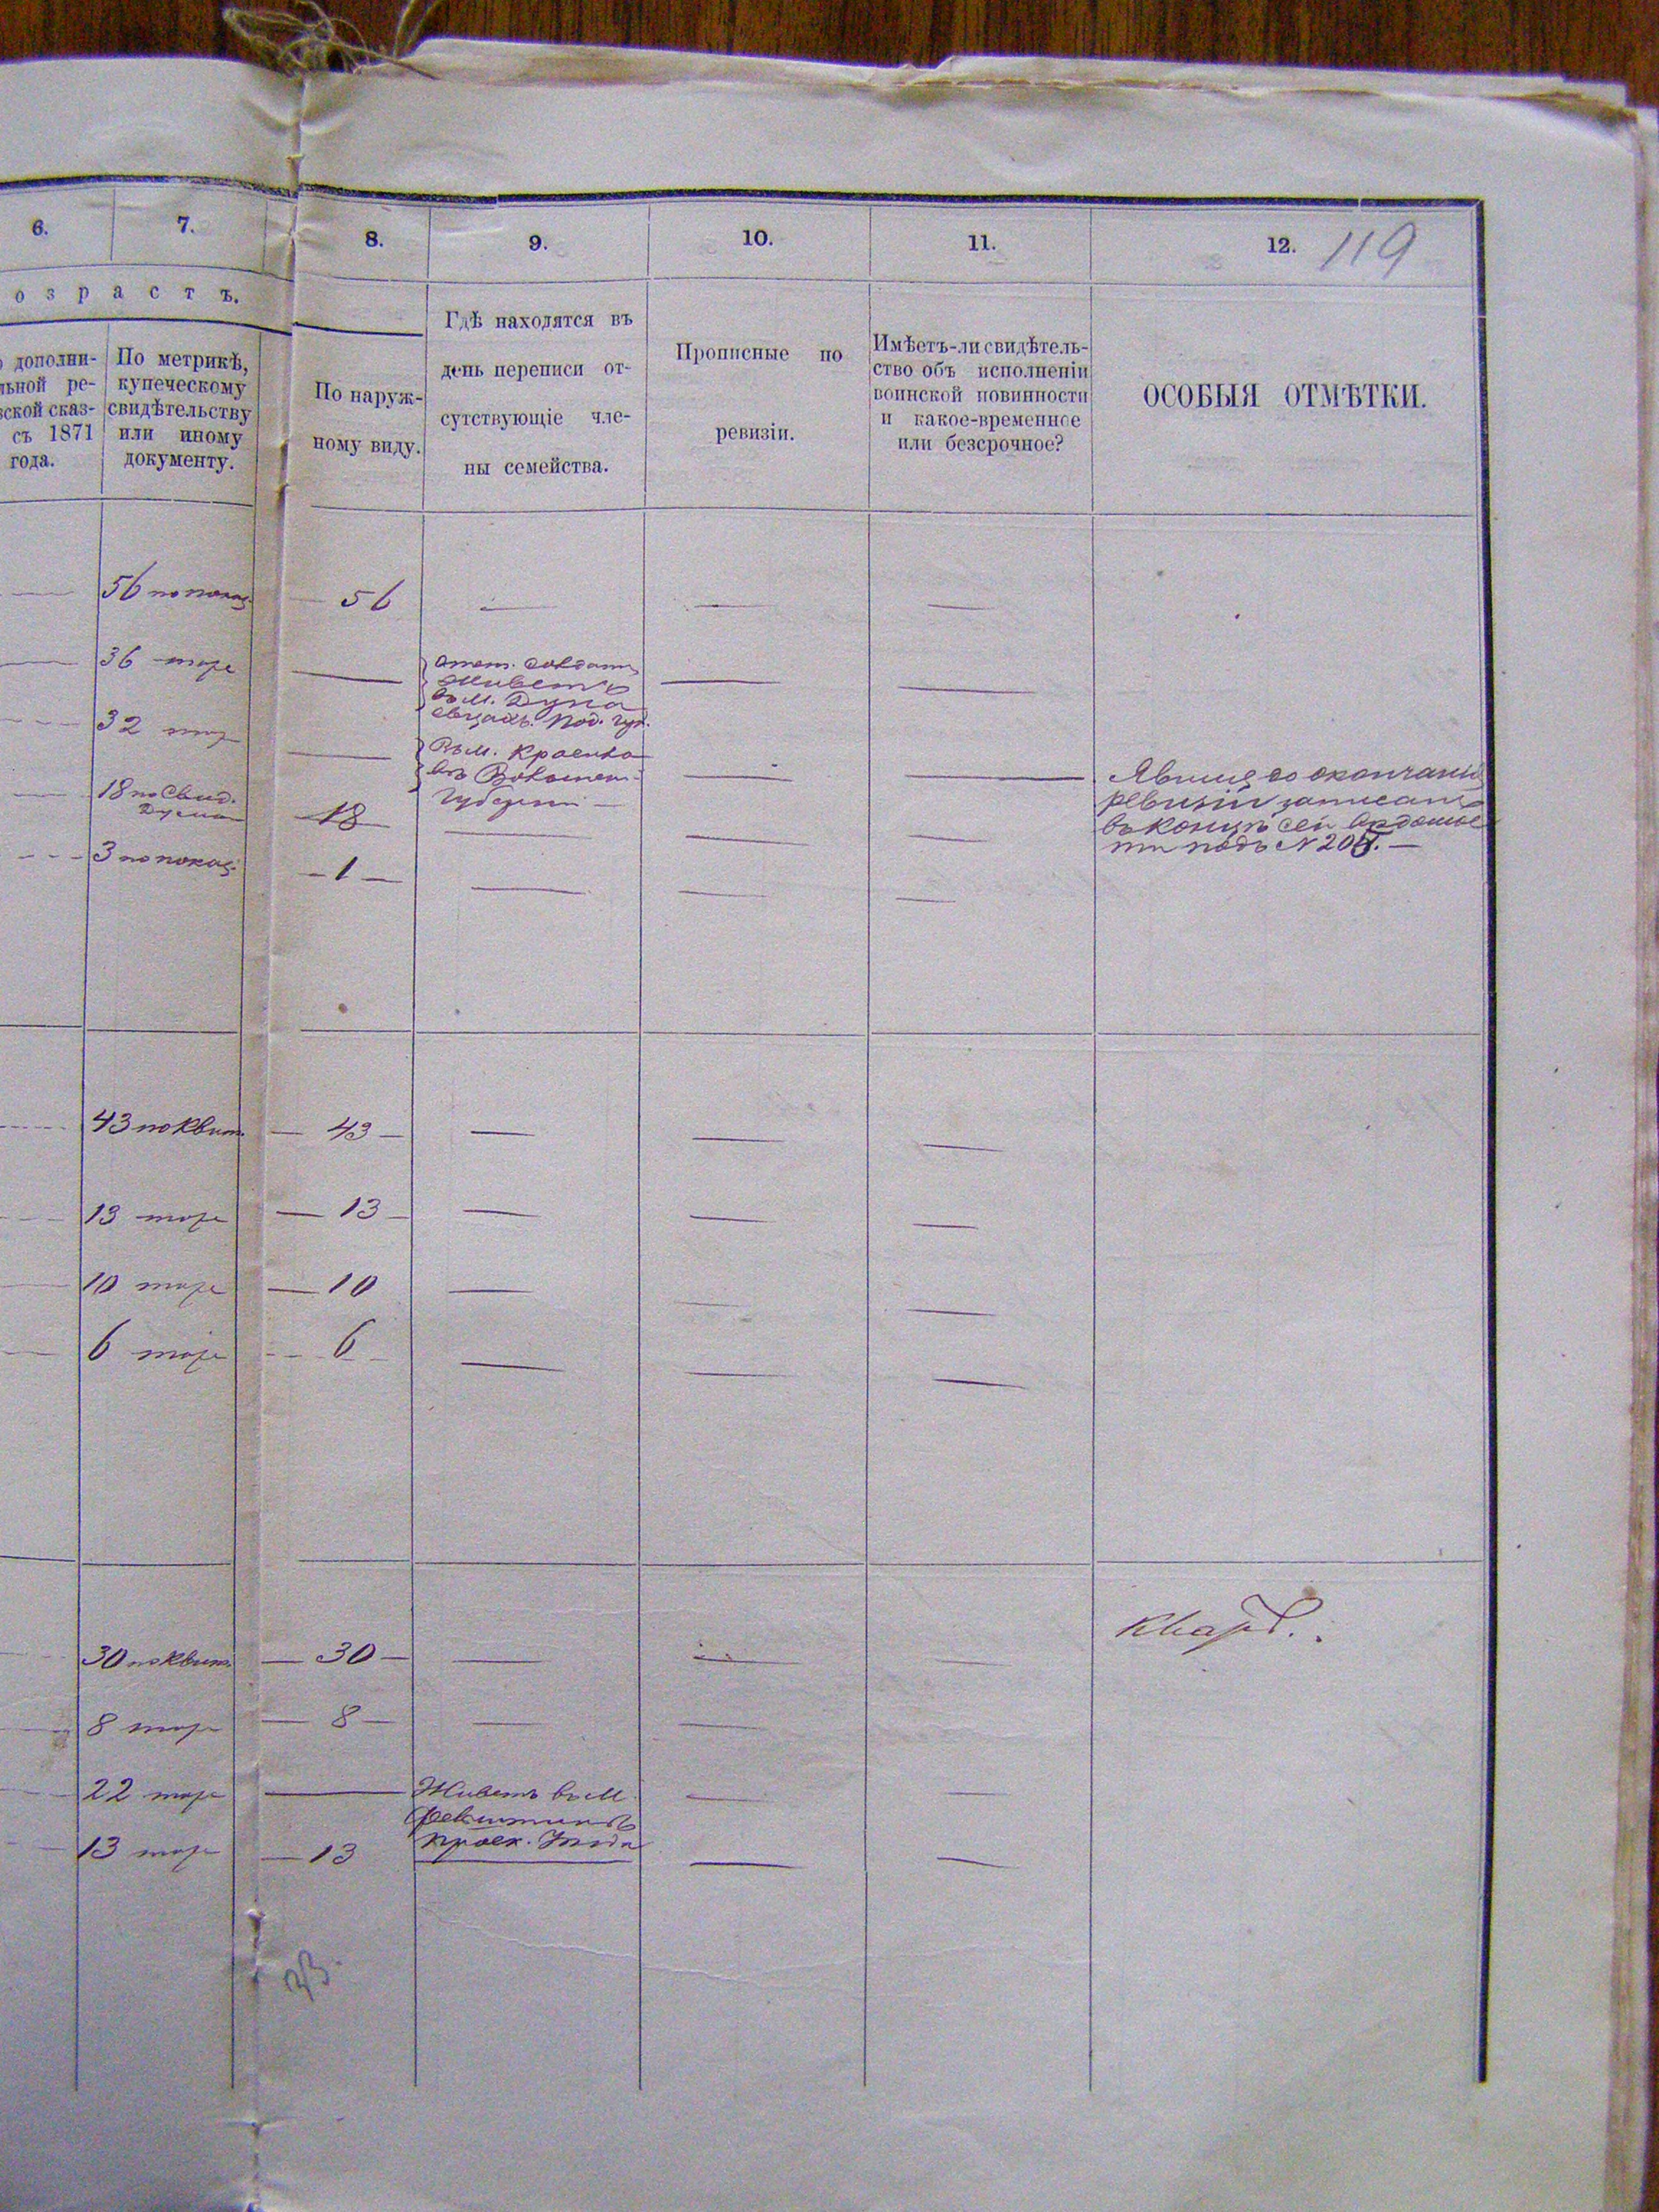 6. 7. 8. 9. 10. 11. 12. 119
озрастъ.
дополни-
льной ре-
ской сказ-
съ 1871
года.
По метрикѣ,
купеческому
свидѣтельству
или иному
документу.
По наруж-
ному виду.
Гдѣ находятся въ
день переписи от-
сутствующіе чле-
ны семейства.
Прописные по
ревизіи.
Имѣетъ-ли свидѣтель-
ство объ исполненіи
воинской повинности
и какое-временное
или безсрочное?
ОСОБЫЯ ОТМѢТКИ.
56 по показ. — 56 — — —
36 тоже —
Живетъ
въ м. Дуна
евцахъ. Под. губ.
32 тоже —
Въ м.
въ
губерніи —
18 по Свид.
Думы
— 18 — — — —
3 по показ. — 1 — — — —
ревизіи записанъ
въ концѣ сей
подъ N
43 по Квит. — 43 — — — —
13 тоже — 13 — — — —
10 тоже — 10 — — —
6 тоже — 6 — — — —
30 по Квит. — 30 — — — —
8 тоже — 8 — — —
22 тоже — Живетъ въ м. — —
Проск. Уѣзда
13 тоже — 13 — —